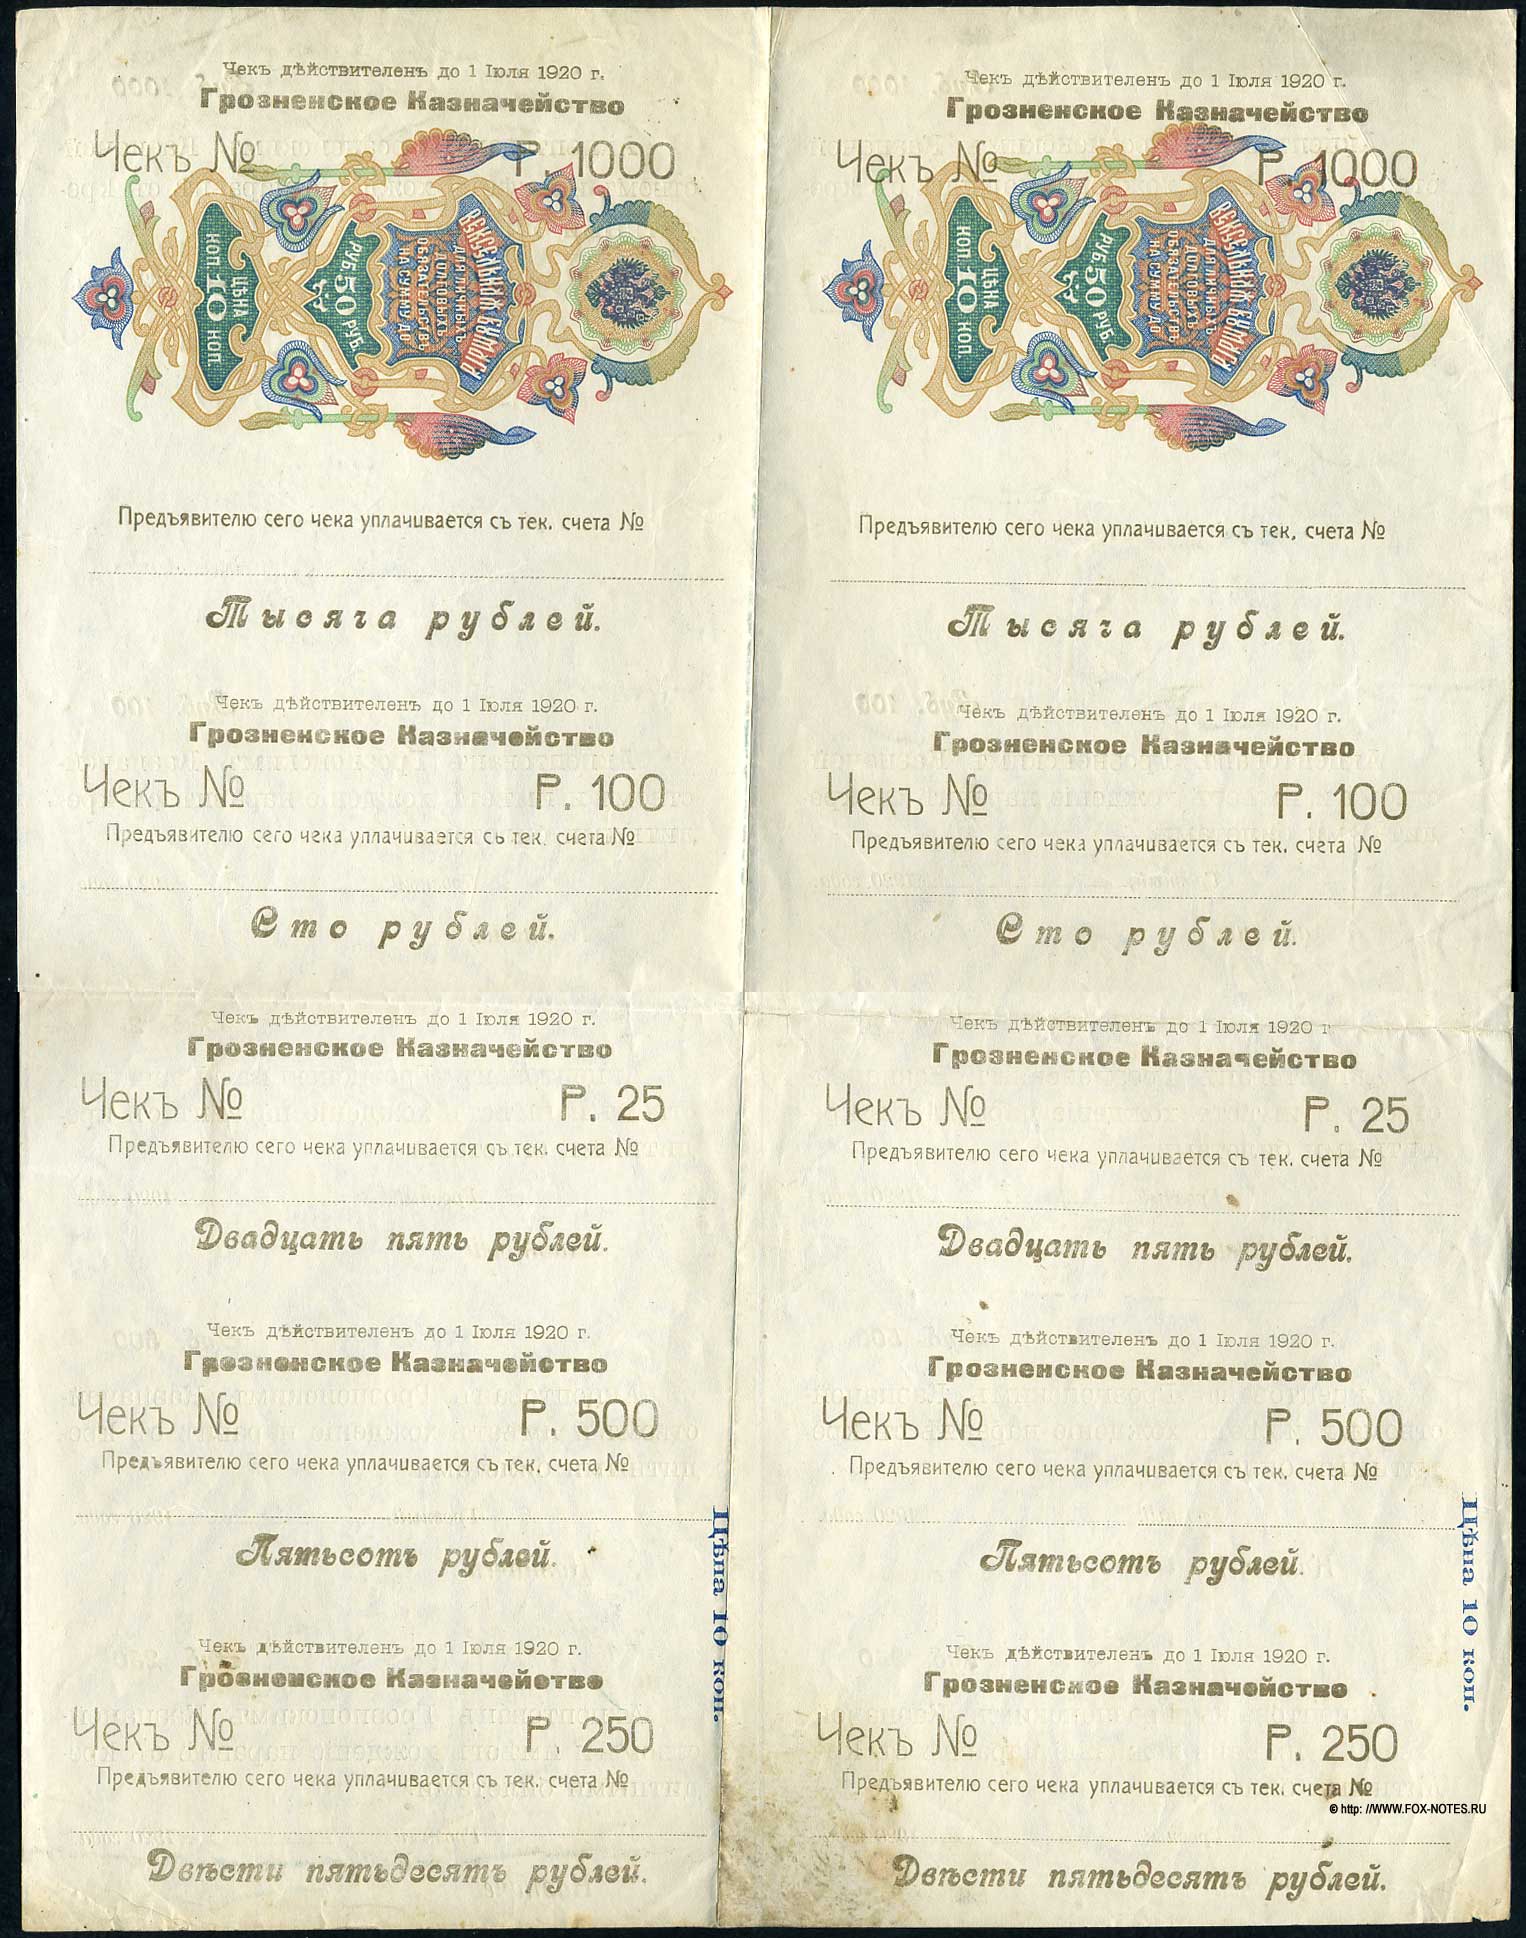 Чекъ дѣйствителенъ до 1 Iюля 1920 г.
Грозненское Казначейство
Чекъ № Р. 1000
ВЕКСЕЛЬНАЯ БУМАГА
ДЛЯ ЛИЧНЫХЪ
ДОЛГОВЫХЪ
ОБЯЗАТЕЛЬСТВЪ
НА СУММУ ДО
РУБ 50 РУБ
ЦѢНА
КОП 10 КОП
Предъявителю сего чека уплачивается съ тек. счета №
Тысяча рублей.
Чекъ дѣйствителенъ до 1 Iюля 1920 г.
Грозненское Казначейство
Чекъ № Р. 100
Предъявителю сего чека уплачивается съ тек. счета №
Сто рублей.
Чекъ дѣйствителенъ до 1 Iюля 1920 г.
Грозненское Казначейство
Чекъ № Р. 25
Предъявителю сего чека уплачивается съ тек. счета №
Двадцать пять рублей.
Чекъ дѣйствителенъ до 1 Iюля 1920 г.
Грозненское Казначейство
Чекъ № Р. 500
Предъявителю сего чека уплачивается съ тек. счета №
Пятьсотъ рублей.
Чекъ дѣйствителенъ до 1 Iюля 1920 г.
Грозненское Казначейство
Чекъ № Р. 250
Предъявителю сего чека уплачивается съ тек. счета №
Двѣсти пятьдесятъ рублей.
Цѣна 10 коп.
Чекъ дѣйствителенъ до 1 Iюля 1920 г.
Грозненское Казначейство
Чекъ № Р. 1000
ВЕКСЕЛЬНАЯ БУМАГА
ДЛЯ ЛИЧНЫХЪ
ДОЛГОВЫХЪ
ОБЯЗАТЕЛЬСТВЪ
НА СУММУ ДО
РУБ 50 РУБ
ЦѢНА
КОП 10 КОП
Предъявителю сего чека уплачивается съ тек. счета №
Тысяча рублей.
Чекъ дѣйствителенъ до 1 Iюля 1920 г.
Грозненское Казначейство
Чекъ № Р. 100
Предъявителю сего чека уплачивается съ тек. счета №
Сто рублей.
Чекъ дѣйствителенъ до 1 Iюля 1920 г
Грозненское Казначейство
Чекъ № Р. 25
Предъявителю сего чека уплачивается съ тек. счета №
Двадцать пять рублей.
Чекъ дѣйствителенъ до 1 Iюля 1920 г.
Грозненское Казначейство
Чекъ № Р. 500
Предъявителю сего чека уплачивается съ тек. счета №
Пятьсотъ рублей.
Чекъ дѣйствителенъ до 1 Iюля 1920 г.
Грозненское Казначейство
Чекъ № Р. 250
Предъявителю сего чека уплачивается съ тек. счета №
Двѣсти пятьдесятъ рублей.
Цѣна 10 коп.
© http: //WWW.FOX-NOTES.RU